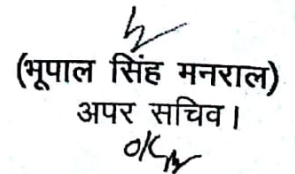 (भूपाल सिंह मनराल)
अपर सचिव।